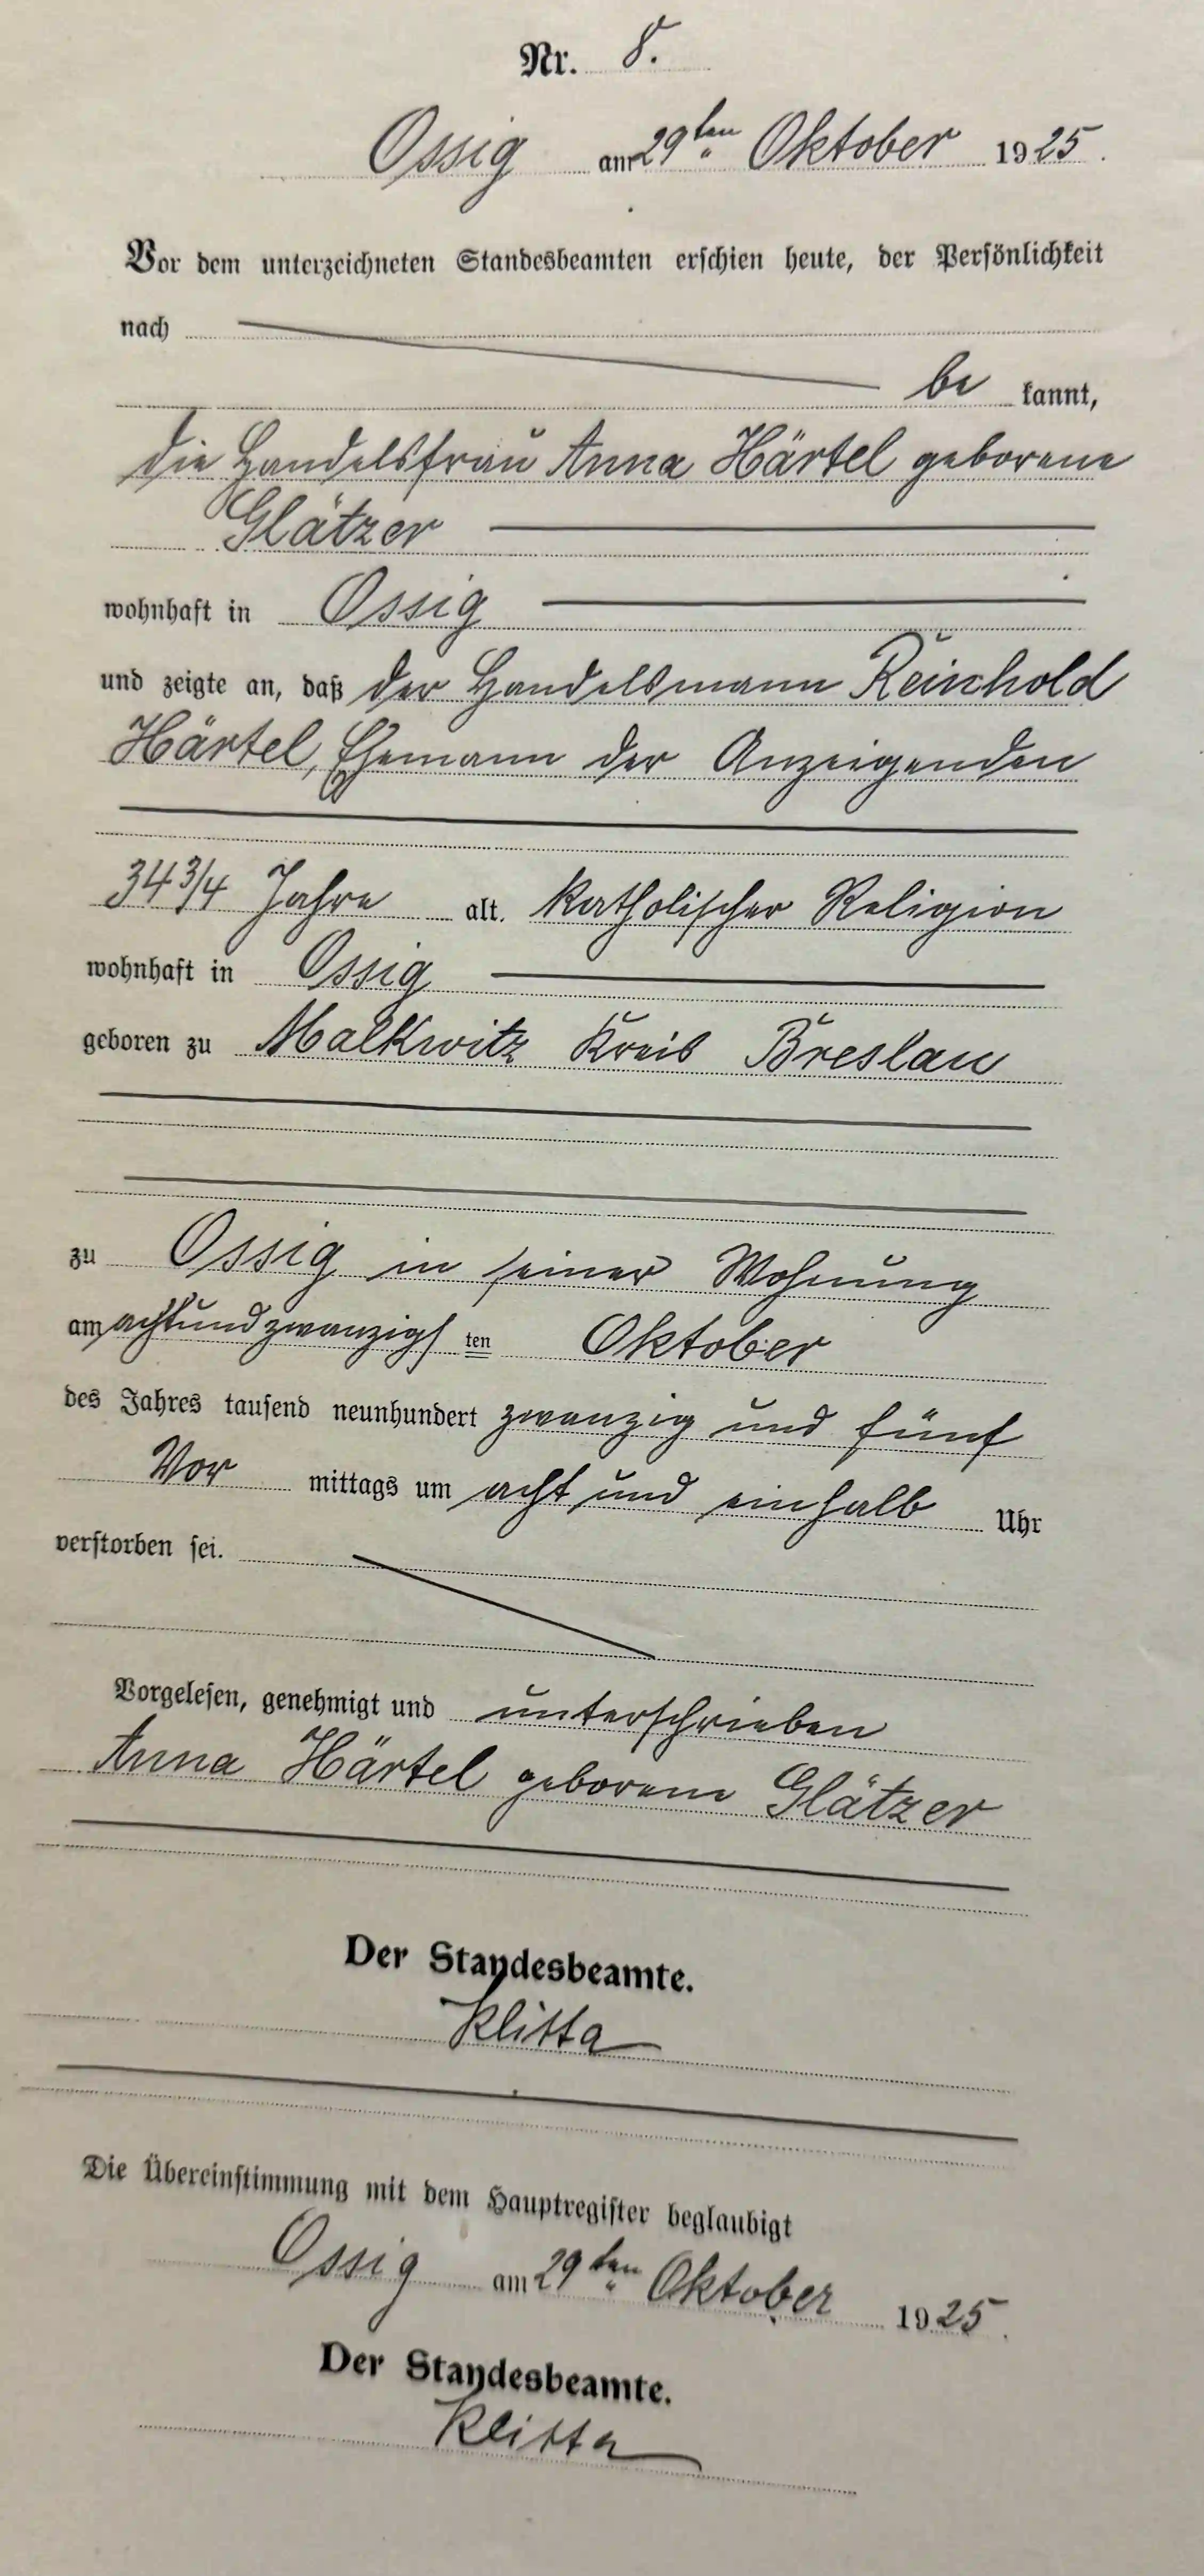 Nr. 8.
Ossig am 29ten Oktober 1925.
Vor dem unterzeichneten Standesbeamten erschien heute, der Persönlichkeit
nach
be kannt,
die Handelsfrau Anna Härtel geborene
Glätzer
wohnhaft in Ossig
und zeigte an, daß der Handelsmann Reinhold
Härtel, Ehemann der Anzeigenden
34 3/4 Jahre alt, katholischer Religion
wohnhaft in Ossig
geboren zu Malkwitz Kreis Breslau
zu Ossig in seiner Wohnung
am achtundzwanzigs ten Oktober
des Jahres tausend neunhundert zwanzig und fünf
Vor mittags um acht und einhalb Uhr
verstorben sei.
Vorgelesen, genehmigt und unterschrieben
Anna Härtel geborene Glätzer
Der Standesbeamte.
Klitta
Die Übereinstimmung mit dem Hauptregister beglaubigt
Ossig am 29ten Oktober 1925.
Der Standesbeamte.
Klitta